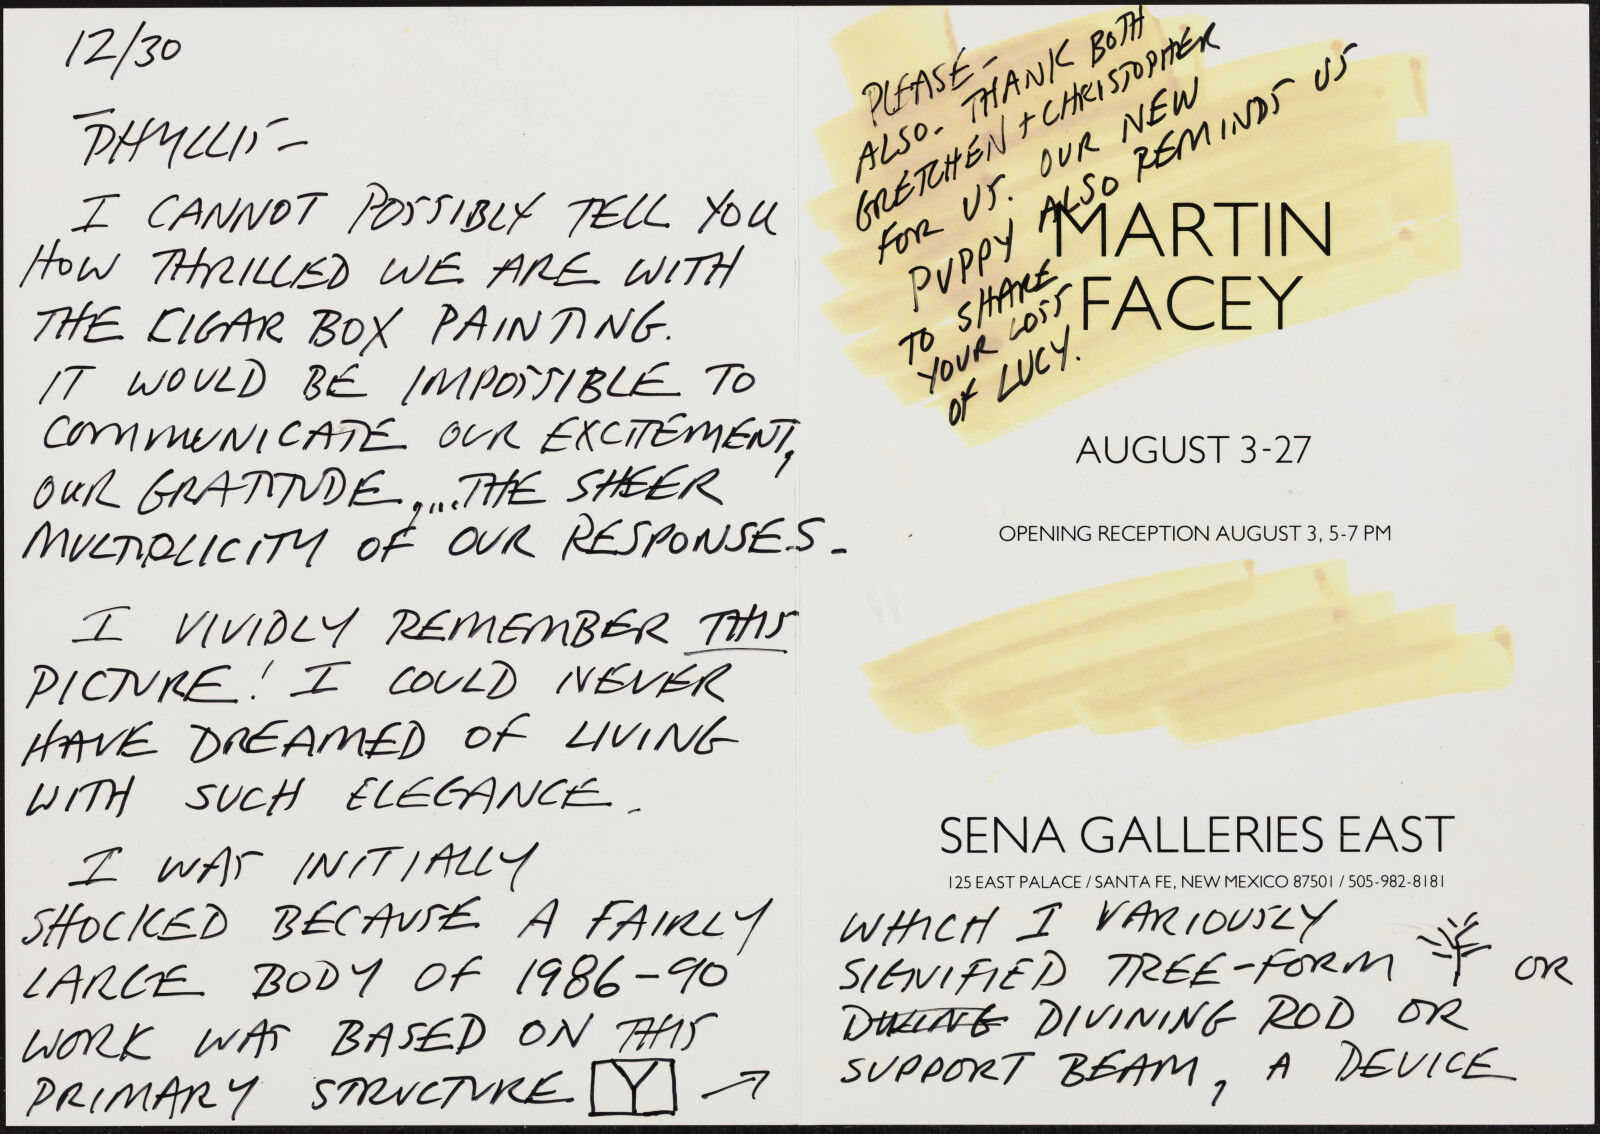 12/30
PHYLLIS –
I CANNOT POSSIBLY TELL YOU
HOW THRILLED WE ARE WITH
THE CIGAR BOX PAINTING.
IT WOULD BE IMPOSSIBLE TO
COMMUNICATE OUR EXCITEMENT,
OUR GRATITUDE,...THE SHEER
MULTIPLICITY OF OUR RESPONSES.
I VIVIDLY REMEMBER THIS
PICTURE! I COULD NEVER
HAVE DREAMED OF LIVING
WITH SUCH ELEGANCE.
I WAS INITIALLY
SHOCKED BECAUSE A FAIRLY
LARGE BODY OF 1986–90
WORK WAS BASED ON THIS
PRIMARY STRUCTURE Y →
PLEASE –
ALSO - THANK BOTH
GRETCHEN + CHRISTOPHER
FOR US. OUR NEW
PUPPY ALSO REMINDS US
TO SHARE
YOUR LOSS
OF LUCY.
MARTIN
FACEY
AUGUST 3-27
OPENING RECEPTION AUGUST 3, 5-7 PM
SENA GALLERIES EAST
125 EAST PALACE / SANTA FE, NEW MEXICO 87501 / 505-982-8181
WHICH I VARIOUSLY
SIGNIFIED TREE-FORM OR
DIVINING ROD OR
SUPPORT BEAM, A DEVICE